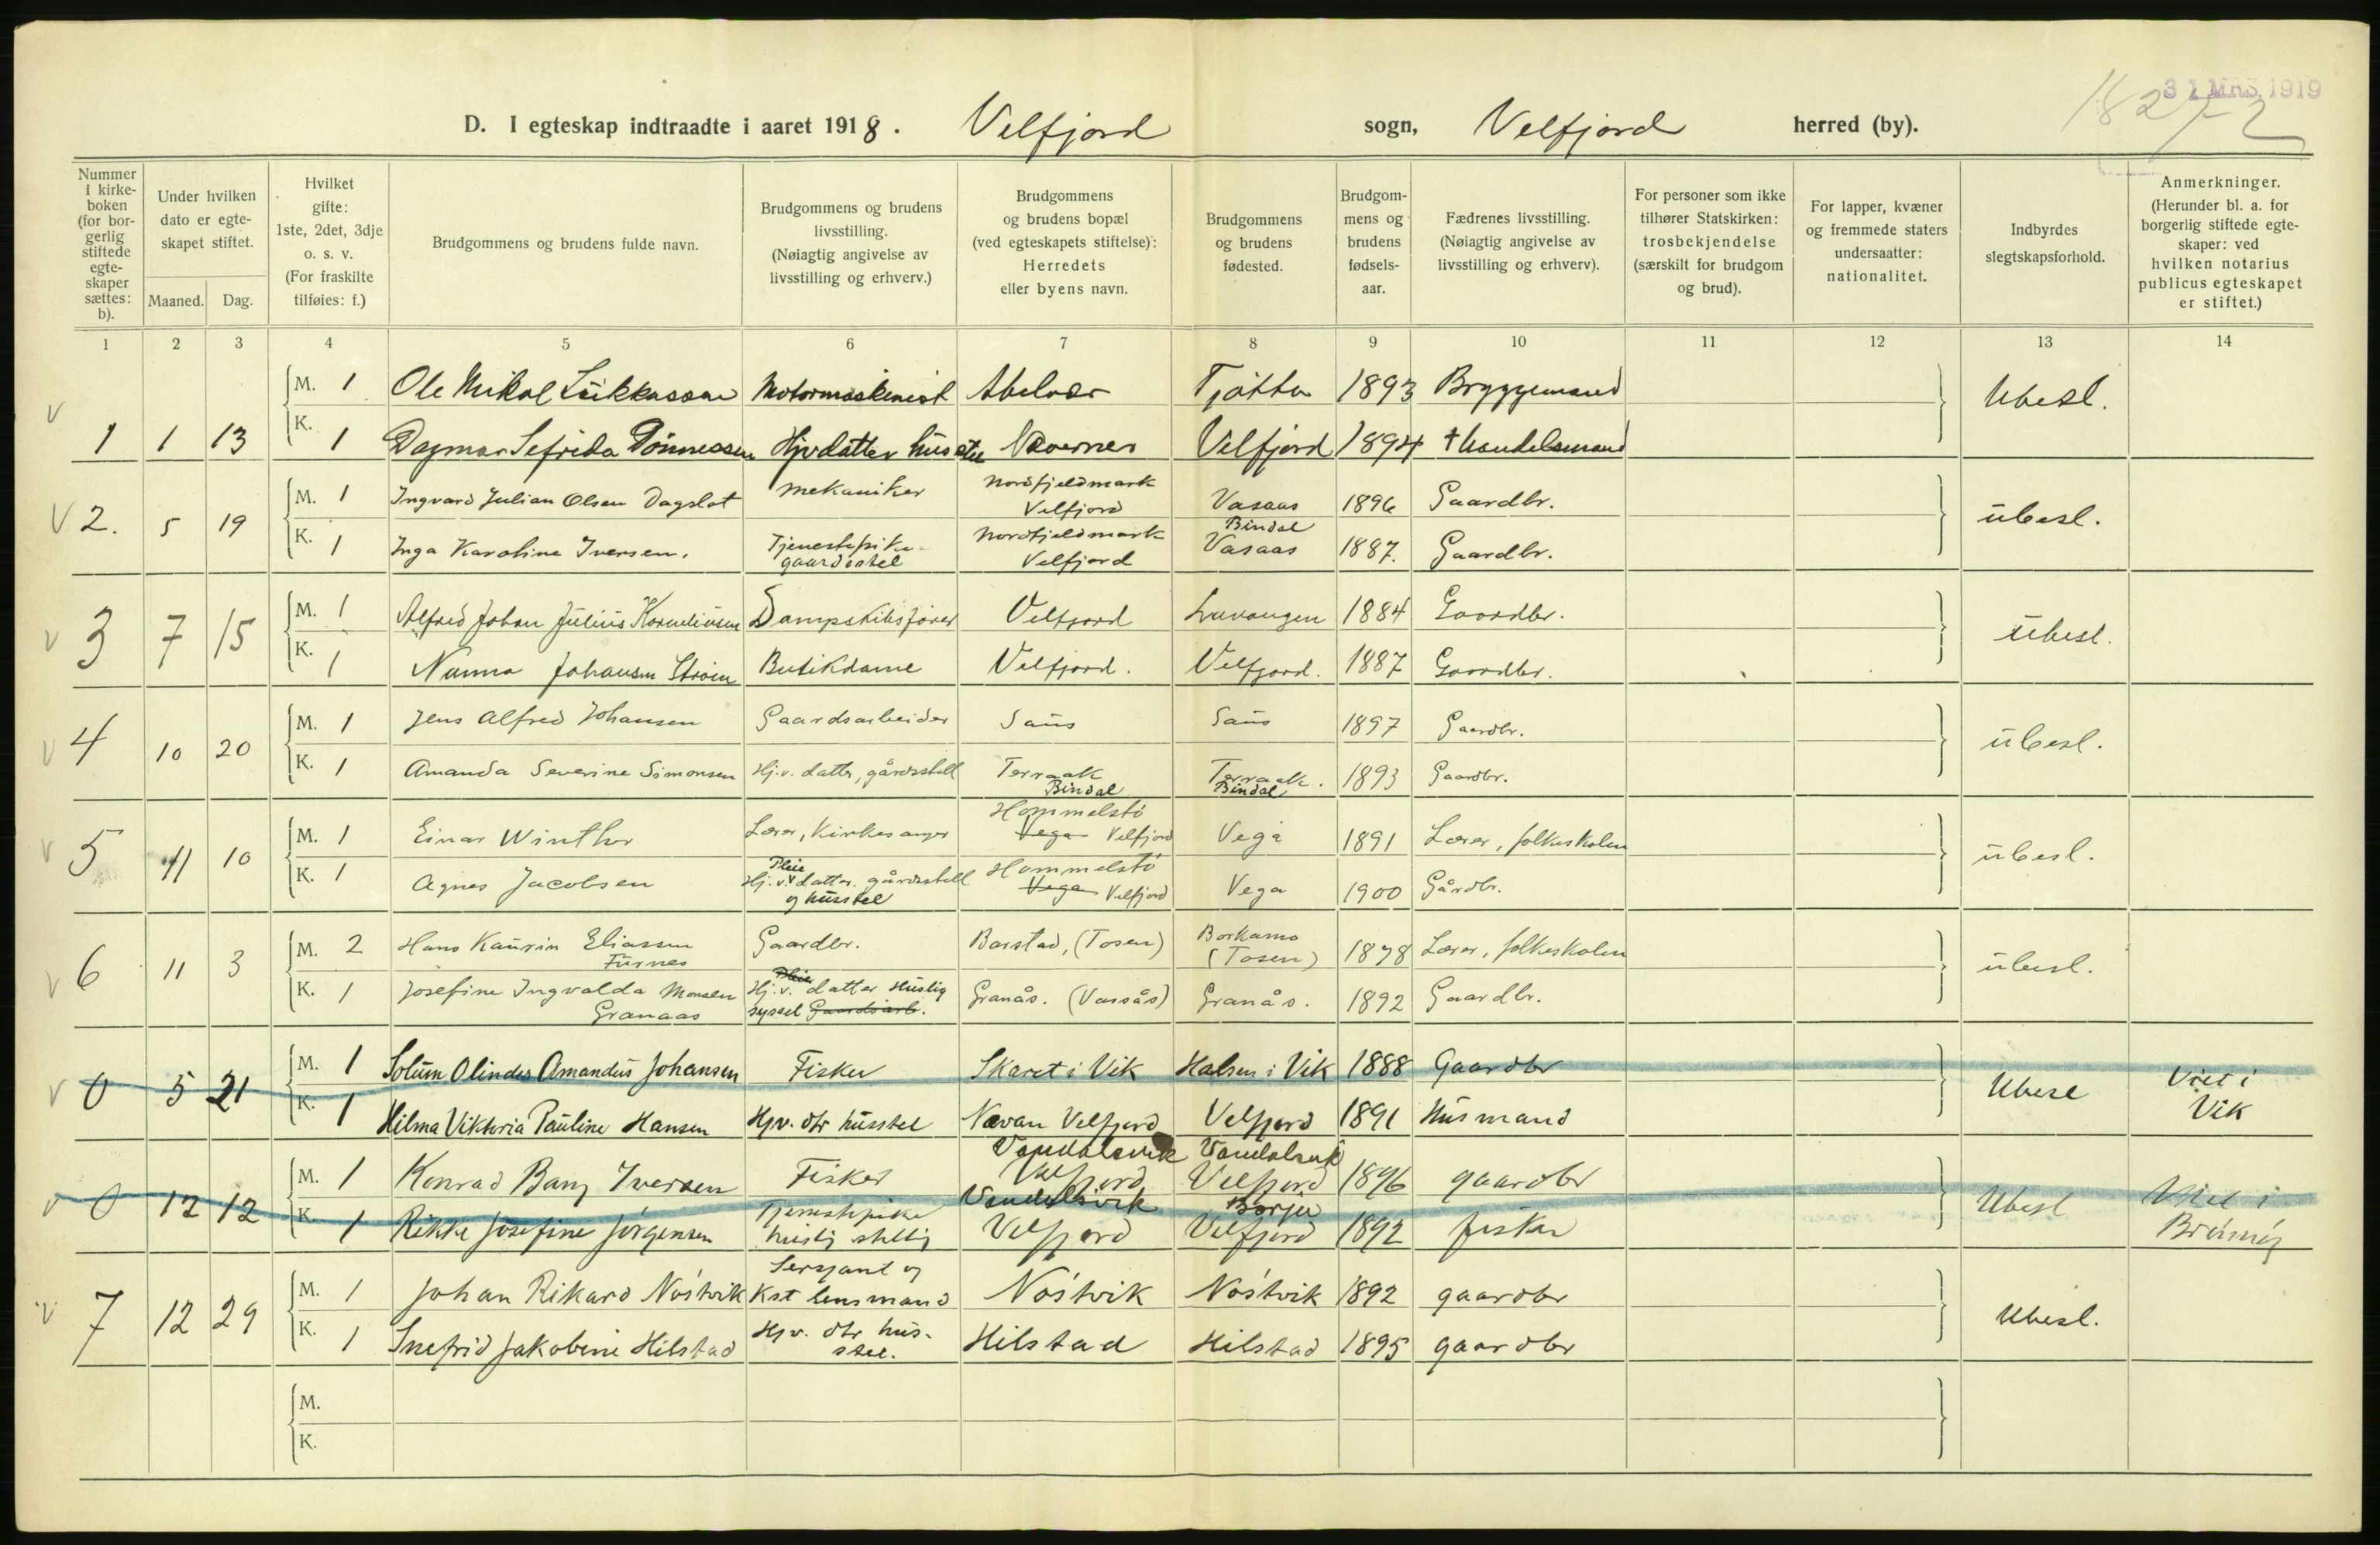 31 MRS. 1919
D. I egteskap indtraadte i aaret 1918. Velfjord sogn, Velfjord herred (by).
Nummer i kirkeboken (for borgerlig stiftede egteskaper sættes: b).
Under hvilken dato er egteskapet stiftet.
Maaned. Dag.
Hvilket gifte: 1ste, 2det, 3dje o. s. v. (For fraskilte tilføies: f.)
Brudgommens og brudens fulde navn.
Brudgommens og brudens livsstilling. (Nøiagtig angivelse av livsstilling og erhverv.)
Brudgommens og brudens bopæl (ved egteskapets stiftelse): Herredets eller byens navn.
Brudgommens og brudens fødested.
Brudgommens og brudens fødselsaar.
Fædrenes livsstilling. (Nøiagtig angivelse av livsstilling og erhverv).
For personer som ikke tilhører Statskirken: trosbekjendelse (særskilt for brudgom og brud).
For lapper, kvæner og fremmede staters undersaatter: nationalitet.
Indbyrdes slegtskapsforhold.
Anmerkninger. (Herunder bl. a. for borgerlig stiftede egteskaper: ved hvilken notarius publicus egteskapet er stiftet.)
1 2 3 4 5 6 7 8 9 10 11 12 13 14
M. 1 Ole Mikal Motormaskinist Abelvær Tjøtta 1893 Bryggemand Ubesl.
1 1 13 K. 1 Dagmar Sefrida Dønnessen Hjv datter husstel Nævernes Velfjord 1894 † Handelsmand
V 2. 5 19 M. 1 Ingvard Julian Olsen Dagslot mekaniker Nordfjeldmark Velfjord Vasaas Bindal 1896 Gaardbr. übesl.
K. 1 Inga Karoline Iversen. Tjenestepike gaardsstel Nordfjeldmark Velfjord Vasaas 1887. Gaardbr.
V 3 7 15 M. 1 Alfred Johan Julius Korneliusen Dampskibsfører Velfjord Lavangen 1884 Gaardbr. übesl.
K. 1 Nanna Johansen Strøm Butikdame Velfjord. Velfjord. 1887 Gaardbr.
V 4 10 20 M. 1 Jens Alfred Johansen Gaardsarbeider Saus Saus 1897 Gaardbr. übesl.
K. 1 Amanda Severine Simonsen Hj.v. datter, gårdsstell Terraak Bindal Terraak. Bindal 1893 Gaardbr.
V 5 11 10 M. 1 Einar Winther Lærer, Kirkesanger Hommelstø Vega Velfjord Vega 1891 Lærer, folkeskolen übesl.
K. 1 Agnes Jacobsen Pleie Hj.v. datter. gårdsstell og husstel Hommelstø Vega Velfjord Vega 1900 Gårdbr.
V 6 11 3 M. 2 Hans Kaurin Eliassen Furnes Gaardbr. Barstad, (Tosen) Borkamo (Tosen) 1878 Lærer, folkeskolen übesl.
K. 1 Josefine Ingvalda Monsen Granaas Pleie Hj.v. datter Huslig syssel Gaardsarb. Granås. (Vassås) Granås. 1892 Gaardbr.
V 0 5 21 M. 1 Solum Olindus Amandus Johansen Fisker Skaret i Vik Halsen i Vik 1888 Gaardbr Ubesl Viet i Vik
K. 1 Hilma Viktoria Pauline Hansen Hjv. dtr husstel Nævan Velfjord Velfjord 1891 Husmand
V 0 12 12 M. 1 Konrad Bang Iversen Fisker Vandalsvik Velfjord Vandalsvik Velfjord 1896 gaardbr Ubesl Viet i Brønnøy
K. 1 Rikke Josefine Jørgensen Tjenestepike huslig stelling Vandalsvik Velfjord Børjer Velfjord 1892 fisker
V 7 12 29 M. 1 Johan Rikard Nøstvik Sersjant og Kst lensmand Nøstvik Nøstvik 1892 gaardbr Ubesl.
K. 1 Snefrid Jakobine Hilstad Hjv. dtr husstel. Hilstad Hilstad 1895 gaardbr
M.
K.